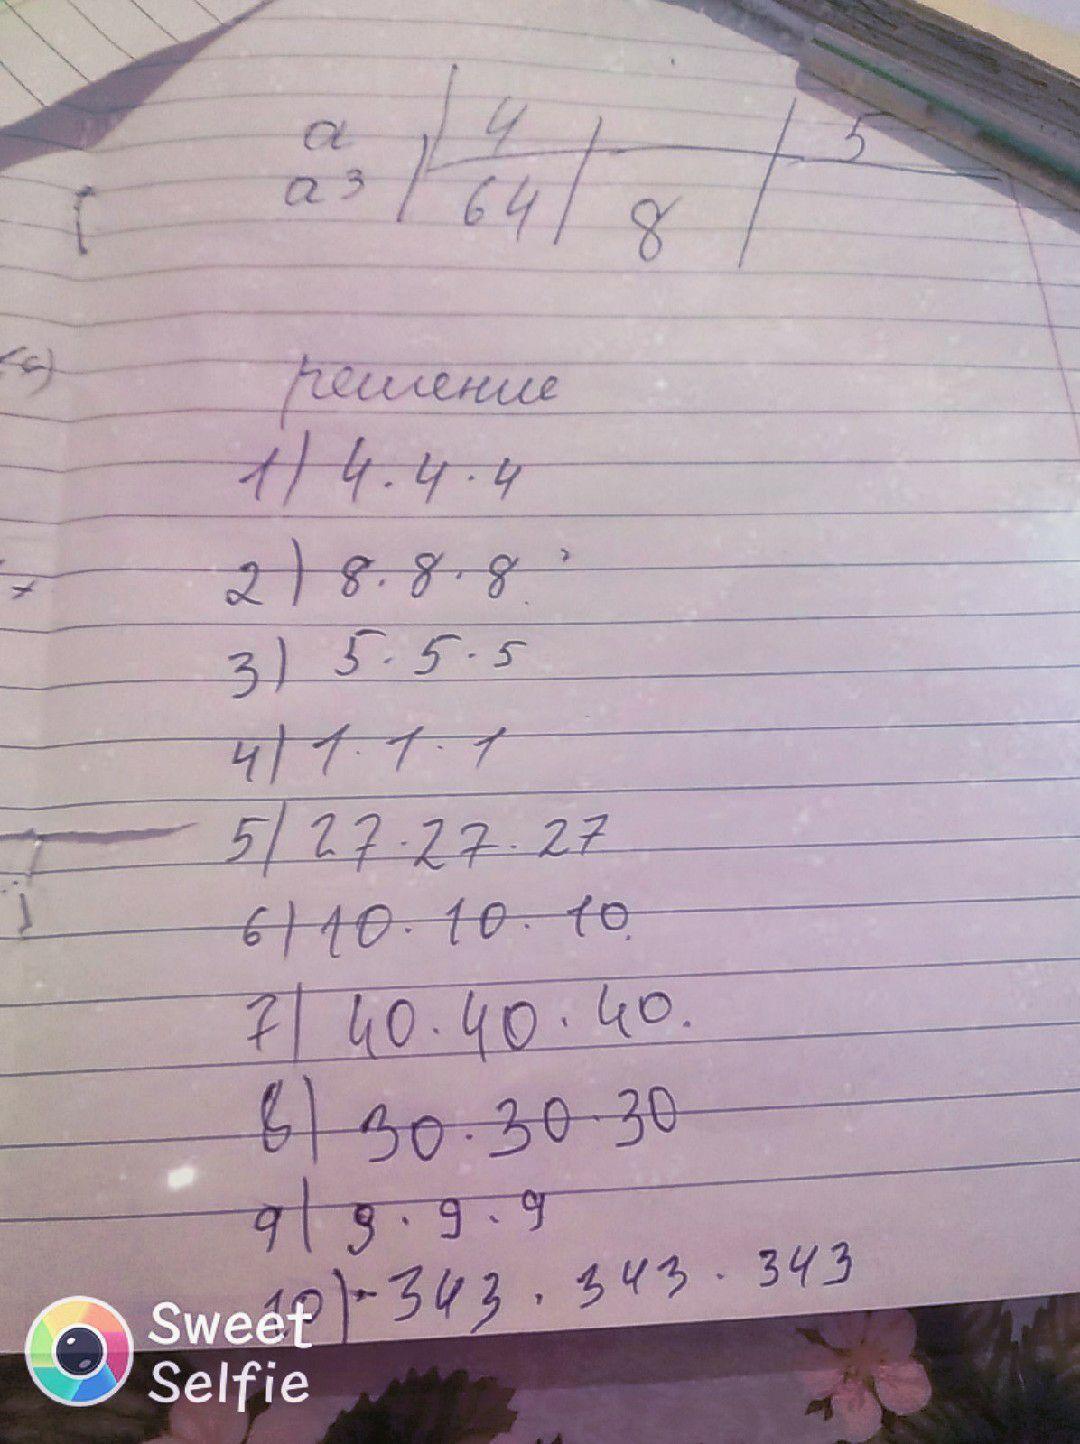 а | 4 | | 5
а³ | 64 | 8 |
решение
1) 4 · 4 · 4
2) 8 · 8 · 8
3) 5 · 5 · 5
4) 1 · 1 · 1
5) 27 · 27 · 27
6) 10 · 10 · 10
7) 40 · 40 · 40.
8) 30 · 30 · 30
9) 9 · 9 · 9
10) -343 · 343 · 343
Sweet
Selfie